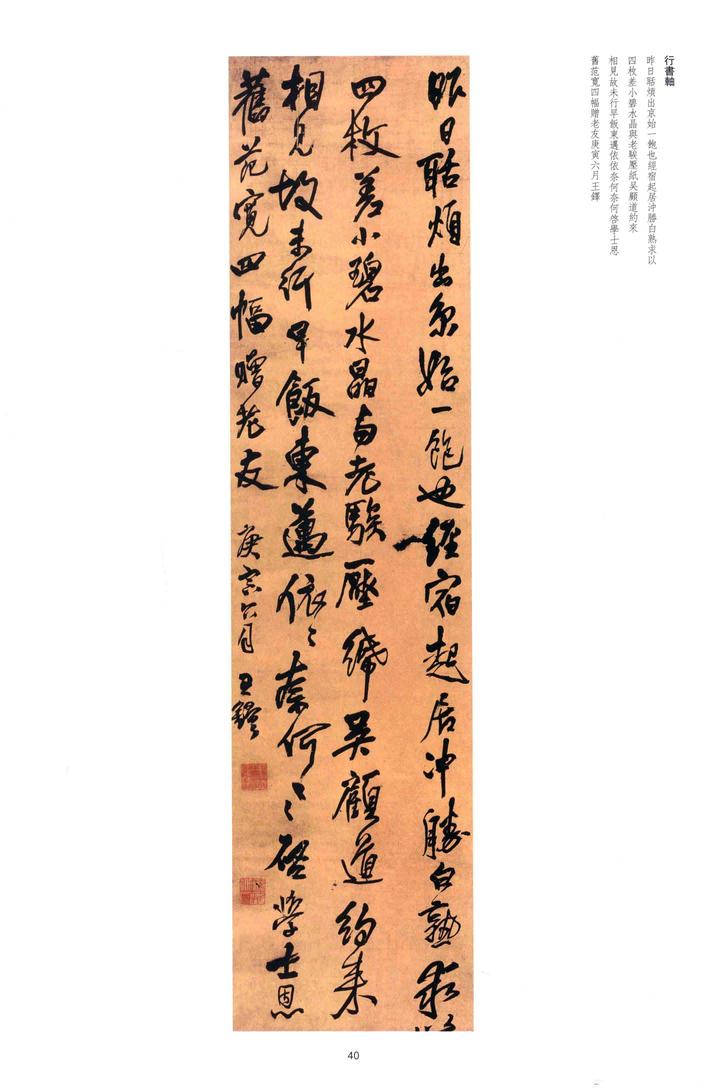 行書軸
昨日聒煩出京始一飽也經宿起居沖勝白熟求以
四枚差小碧水晶與老騃壓紙吴顧道約來
相見故未行早飯東邁依依奈何奈何啓學士恩
舊范寬四幅贈老友庚寅六月王鐸
昨日聒煩出京始一飽也經宿起居冲勝白熟求
四枚差小碧水晶与老騃壓紙吴顧道約來
相見故未行早飯東邁依〻奈何〻〻啓學士恩
舊范寬四幅贈老友 庚寅六月 王鐸
40